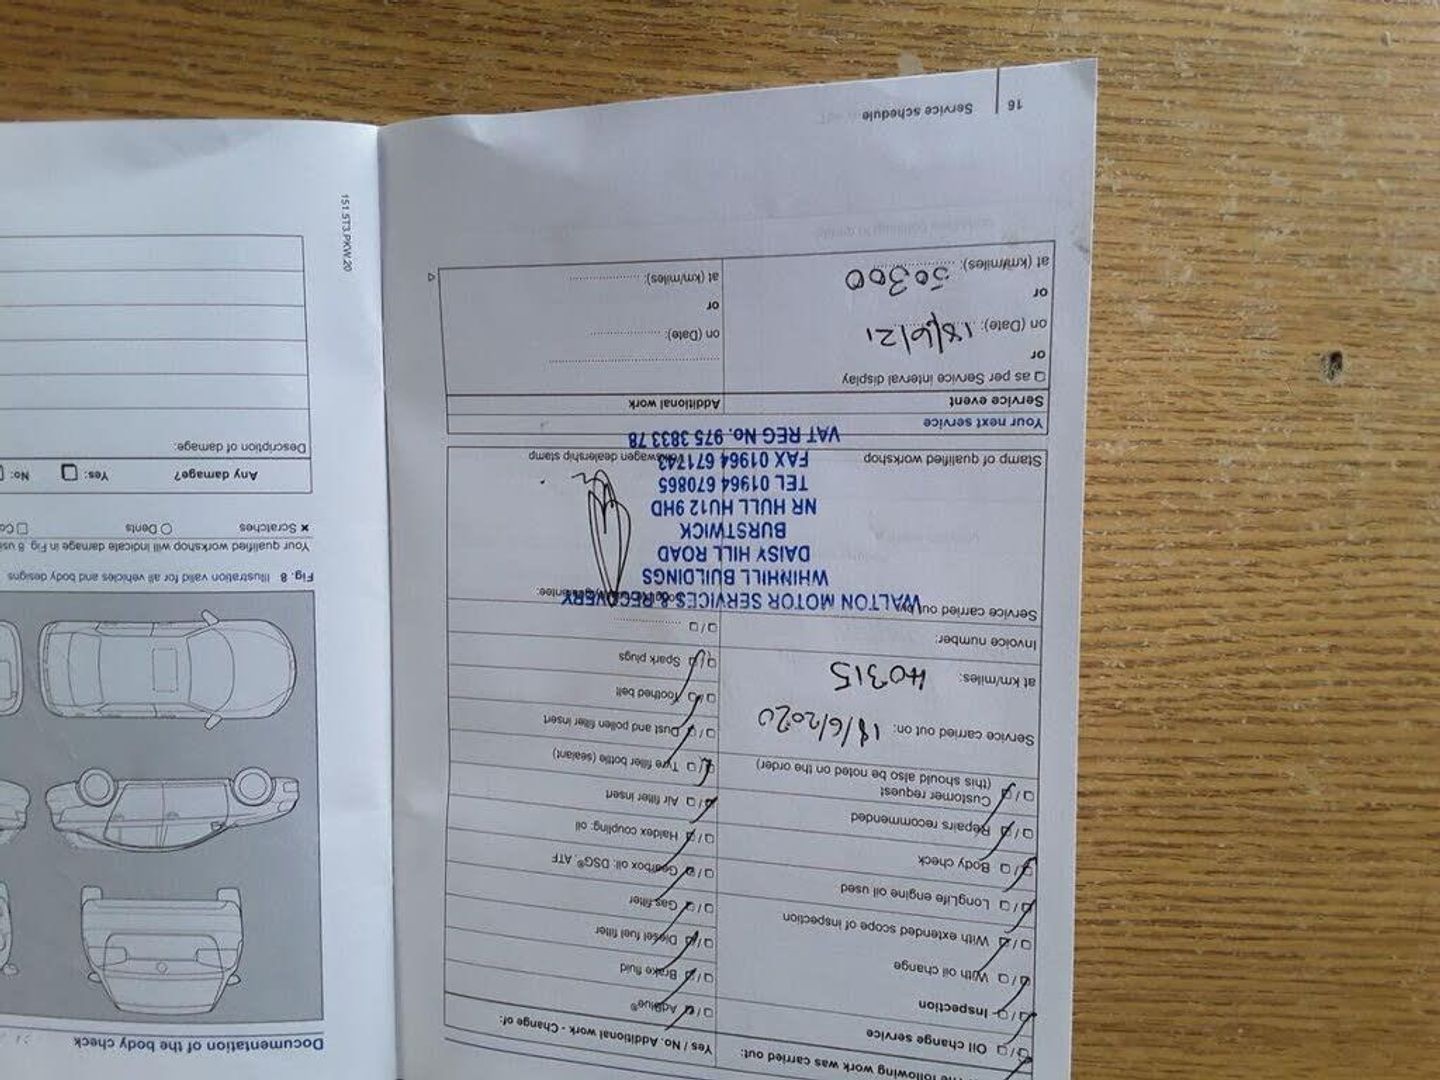 The following work was carried out:
Oil change service
Inspection
With oil change
With extended scope of inspection
LongLife engine oil used
Body check
Repairs recommended
Customer request
(this should also be noted on the order)
Service carried out on: 18/6/2020
at km/miles: 40315
Invoice number:
Service carried out by:
Yes / No. Additional work - Change of:
AdBlue®
Brake fluid
Diesel fuel filter
Gas filter
Gearbox oil: DSG®, ATF
Haldex coupling: oil
Air filter insert
Tyre filler bottle (sealant)
Dust and pollen filter insert
Toothed belt
Spark plugs
WALTON MOTOR SERVICES & RECOVERY
WHINHILL BUILDINGS
DAISY HILL ROAD
BURSTWICK
NR HULL HU12 9HD
TEL 01964 670865
FAX 01964 671743
VAT REG No. 975 3833 78
Stamp of qualified workshop
Volkswagen dealership stamp
Your next service
Service event
Additional work
as per Service interval display
or
on (Date): 18/6/21
or
at (km/miles): 50300
on (Date):
or
at (km/miles):
16 Service schedule
Documentation of the body check
Fig. 8 Illustration valid for all vehicles and body designs
Your qualified workshop will indicate damage in Fig. 8
Scratches Dents
Any damage? Yes: No:
Description of damage:
151.5T3.PKW.20